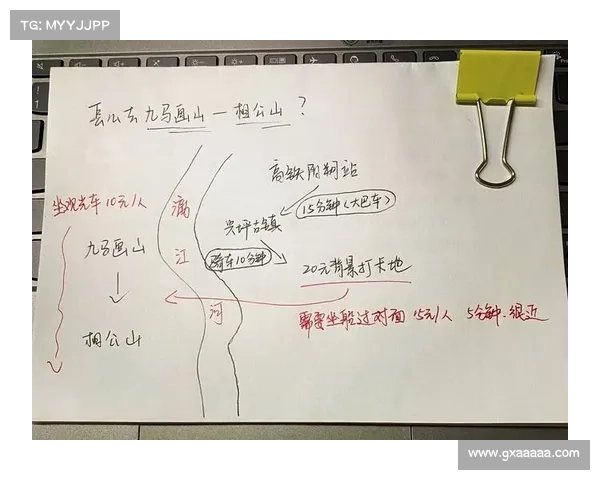 TG: MYYJJPP
怎么去九马画山一相公山？
高铁阳朔站
坐观光车10元/人
漓
15分钟(大巴车)
兴坪古镇
九马画山
江
骑车10分钟
20元背景打卡地
河
需要坐船过对面 15元/人 5分钟.很近
相公山
www.gxaaaaa.com